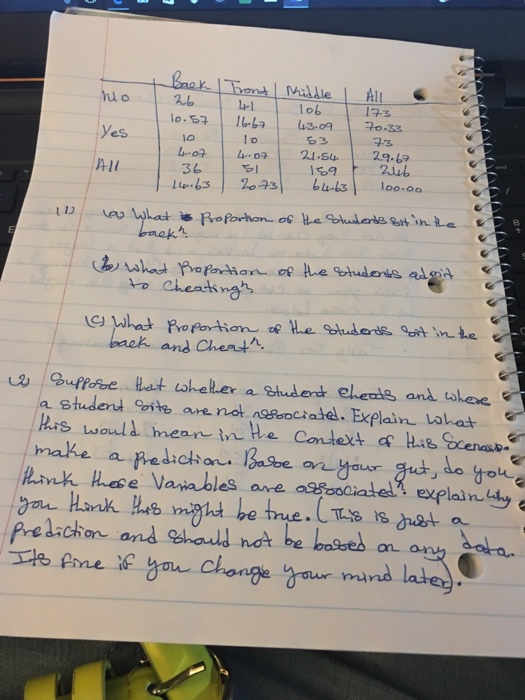 Back Front Middle All
No 26 41 106 173
10.57 16.67 43.09 70.33
Yes 10 10 53 73
4.07 4.07 21.54 29.67
All 36 51 159 246
14.63 20.73 64.63 100.00
(1) (a) What is Proportion of the Students sit in the
back?
(b) What Proportion of the students admit
to cheating?
(c) What Proportion of the students sit in the
back and cheat?
(2) Suppose that whether a student cheats and where
a student sits are not associated. Explain what
this would mean in the context of this scenario.
make a prediction. Base on your gut, do you
think these variables are associated? explain why
you think this might be true. (This is just a
prediction and should not be based on any data.
Its fine if you change your mind later).